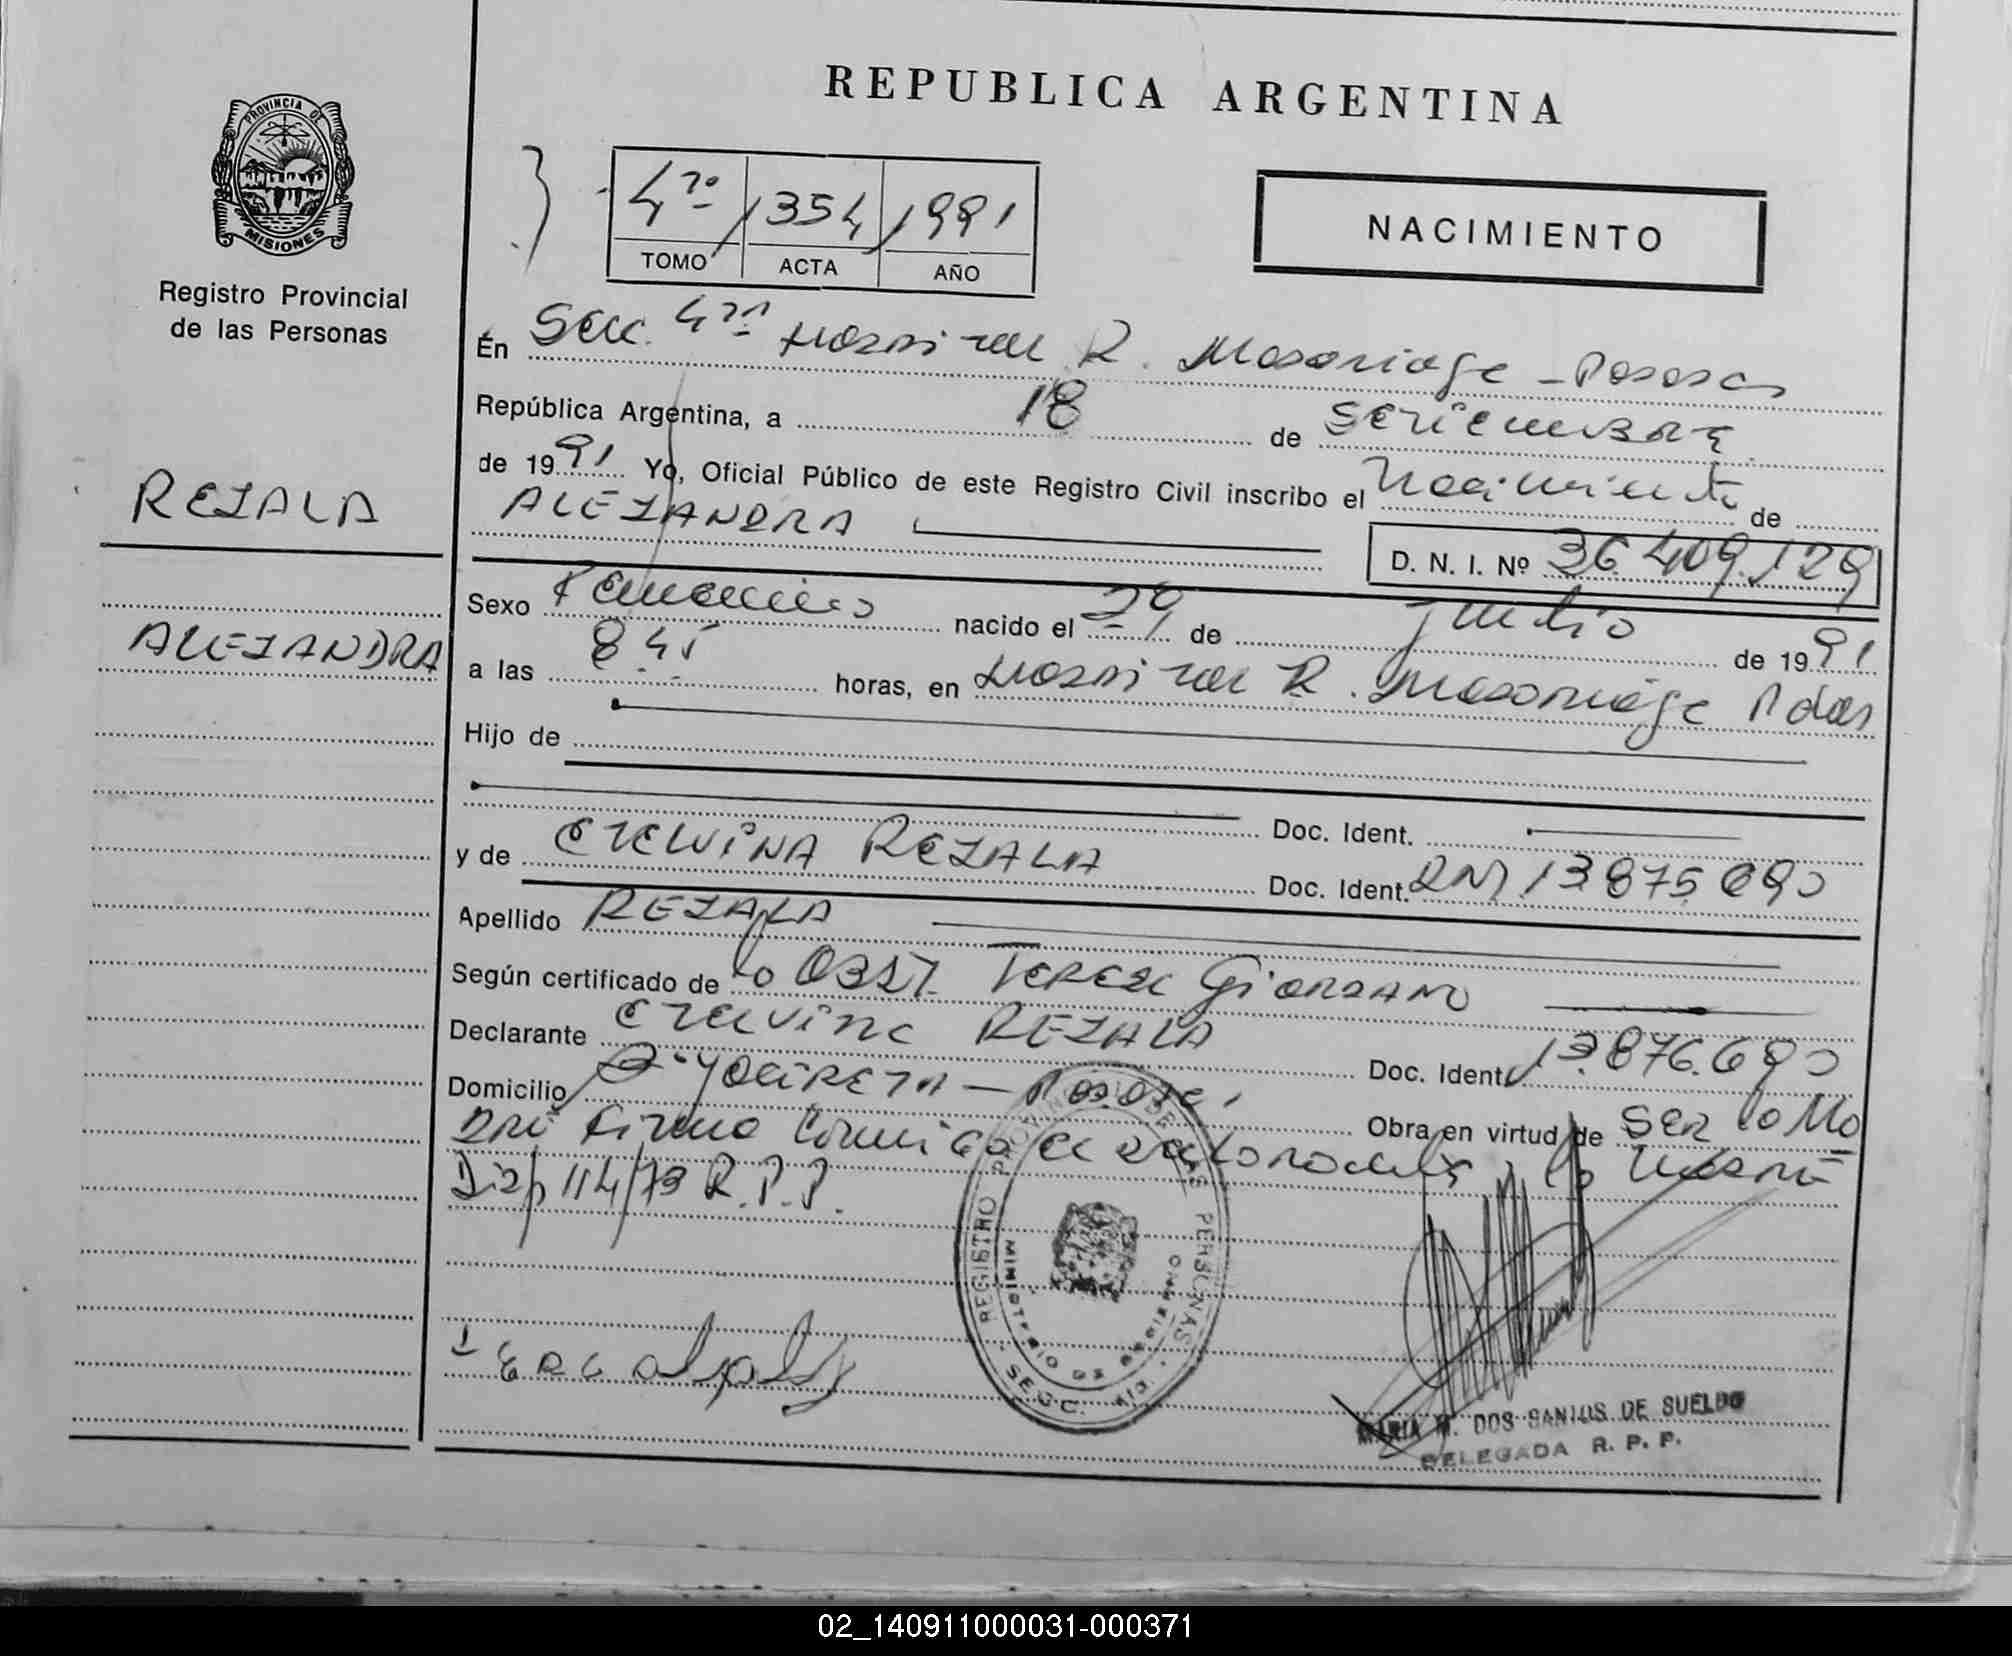 REPUBLICA ARGENTINA
PROVINCIA DE
MISIONES
Registro Provincial
de las Personas
4to 1354 1991
TOMO ACTA AÑO
NACIMIENTO
En Secc. 4ta Hospital R. Madariaga - Posadas
República Argentina, a 18 de SETIEMBRE
de 1991 Yo, Oficial Público de este Registro Civil inscribo el Nacimiento de
ALEJANDRA
D. N. I. Nº 36.409.129
REJALA
ALEJANDRA
Sexo Femenino nacido el 29 de Julio de 1991
a las 8 45 horas, en Hospital R. Madariaga Pdas
Hijo de
Doc. Ident.
y de ETELVINA REJALA Doc. Ident. DNI 13875690
Apellido REJALA
Según certificado de lo OBST. TERESA GIORDANO
Declarante ETELVINA REJALA Doc. Ident. 13.876.690
Domicilio YACIRETA - Posadas Obra en virtud de SER la MA
DRE firma la
Disp 114/73 R.P.P.
REGISTRO PROVINCIAL DE LAS PERSONAS
MINISTERIO DE GOBIERNO
SECC. 4ta.
MARIA M. DOS SANTOS DE SUELDO
DELEGADA R. P. P.
02_140911000031-000371